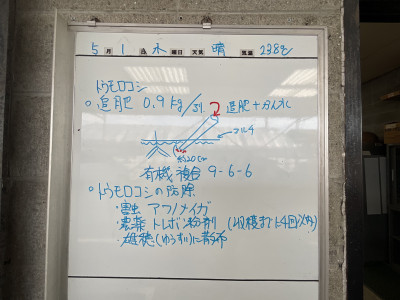 5月1日木曜日 天気 晴 気温 23.8℃
トウモロコシ
○追肥 0.9kg/
追肥+かん水
マルチ
約20cm
有機複合 9-6-6
○トウモロコシの防除
・害虫 アワノメイガ
・農薬 トレボン粉剤 (収穫までに4回以内)
・雄穂(ゆうすい)に散布